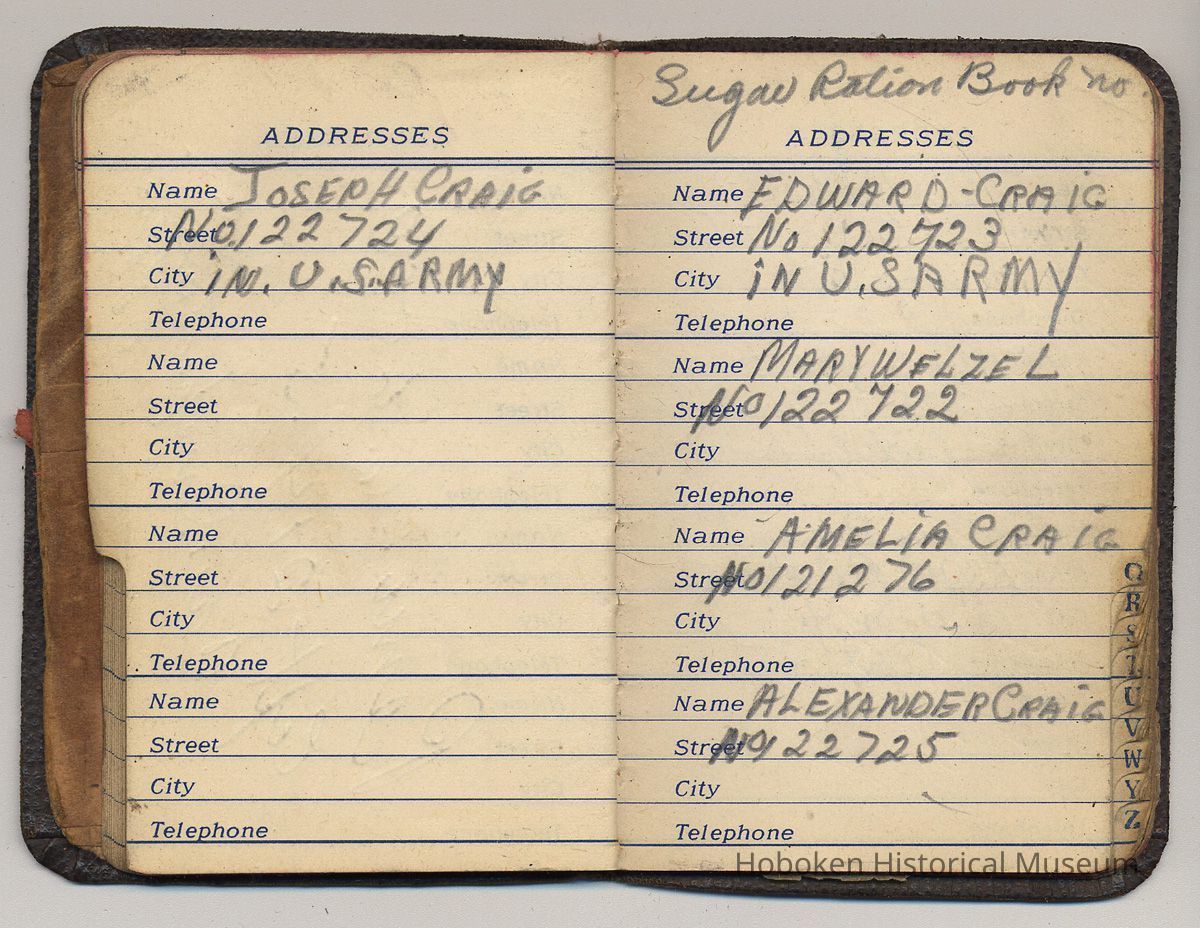 ADDRESSES
Name JOSEPH CRAIG
Street No. 122724
City IN. U.S. ARMY
Telephone
Name
Street
City
Telephone
Name
Street
City
Telephone
Name
Street
City
Telephone
Sugar Ration Book no.
ADDRESSES
Name EDWARD-CRAIG
Street No 122723
City IN U.S ARMY
Telephone
Name MARY WELZEL
Street No 122722
City
Telephone
Name AMELIA CRAIG
Street No 121276
City
Telephone
Name ALEXANDER CRAIG
Street No 122725
City
Telephone
Q
R
S
T
U
V
W
Y
Z
Hoboken Historical Museum